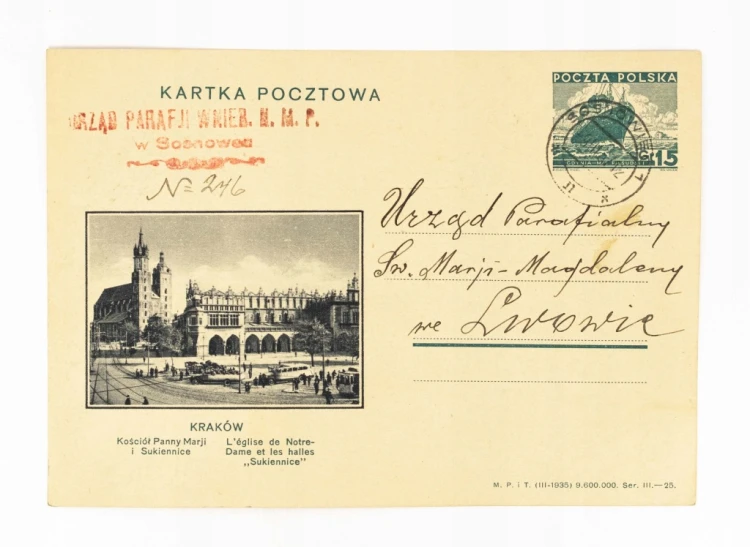 KARTKA POCZTOWA
POCZTA POLSKA
URZĄD PARAFJI WNIEB. N. M. P.
w Sosnowcu
SOSNOWIEC 1
15
№ 246
Urząd Parafialny
Św. Marji-Magdaleny
we Lwowie
KRAKÓW
Kościół Panny Marji
i Sukiennice
L'église de Notre-
Dame et les halles
„Sukiennice"
M. P. i T. (III-1935) 9.600.000. Ser. III.—25.